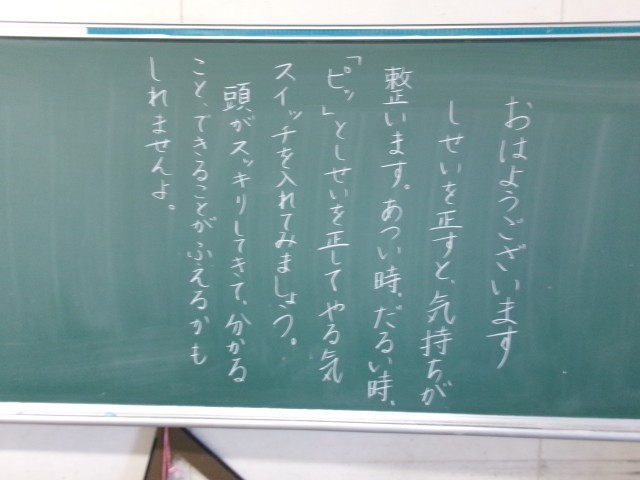 おはようございます
しせいを正すと、気持ちが
整います。あつい時、だるい時、
「ピッ」としせいを正してやる気
スイッチを入れてみましょう。
頭がスッキリしてきて、分かる
こと、できることがふえるかも
しれませんよ。